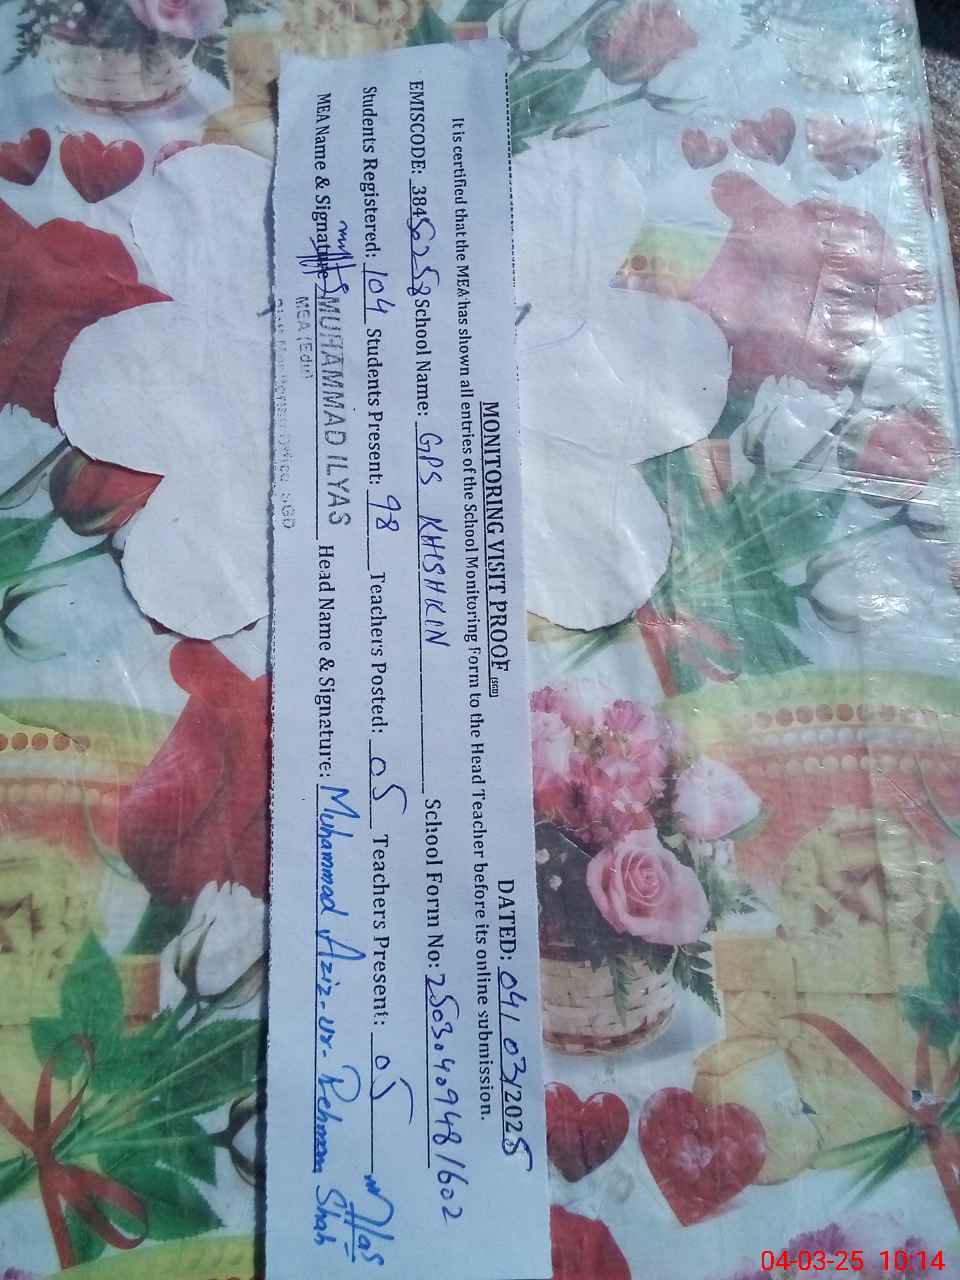 MONITORING VISIT PROOF (SGD) DATED: 04/03/2025
It is certified that the MEA has shown all entries of the School Monitoring Form to the Head Teacher before its online submission.
EMISCODE: 38450258 School Name: GPS KHISHKIN School Form No:
Students Registered: 104 Students Present: 98 Teachers Posted: 05 Teachers Present: 05
MEA Name & Signature MUHAMMAD ILYAS Head Name & Signature: Muhammad Aziz-ur-Rehman Shah
MEA (Edu)
04-03-25 10:14